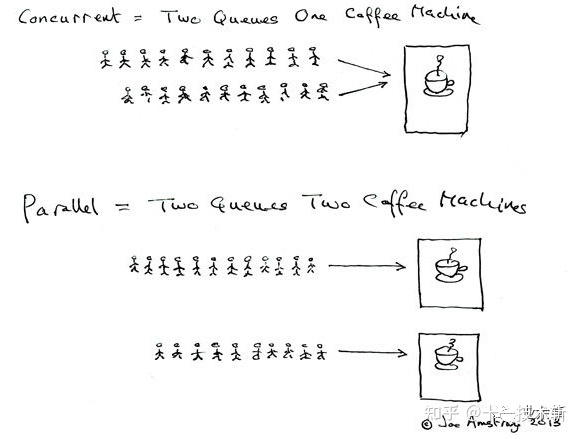 Concurrent = Two Queues One Coffee Machine
Parallel = Two Queues Two Coffee Machines
知乎 @十一
© Joe Armstrong 2013